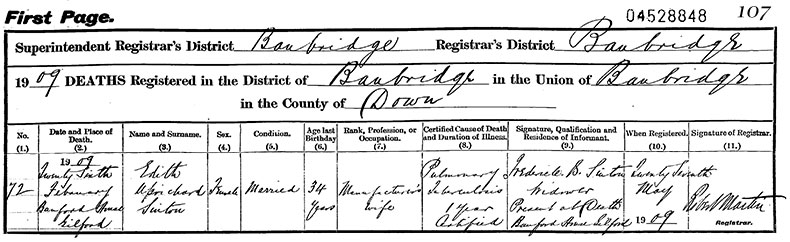 First Page.
04528848
107
Superintendent Registrar's District Banbridge Registrar's District Banbridge
1909 DEATHS Registered in the District of Banbridge in the Union of Banbridge
in the County of Down
No. (1.)
Date and Place of Death. (2.)
Name and Surname. (3.)
Sex. (4.)
Condition. (5.)
Age last Birthday (6.)
Rank, Profession, or Occupation. (7.)
Certified Cause of Death and Duration of Illness. (8.)
Signature, Qualification and Residence of Informant. (9.)
When Registered. (10.)
Signature of Registrar. (11.)
72
1909
Twenty Sixth
Febuuary
Banford House
Gilford
Edith
Uprichard
Sinton
Female
Married
34
Years
Manufacturer's
wife
Pulmonary
Tuberculosis
1 Year
Certified
Frederick B. Sinton
Widower
Present at Death
Banford House Gilford
Twenty Seventh
May
1909
Robt Martin
Registrar.